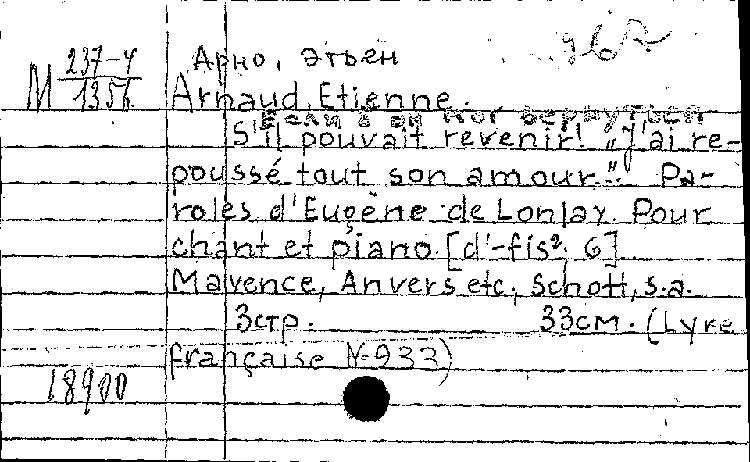 М 237-4
1356
Арно, Этьен
Arnaud, Etienne.
Если б он мог вернуться
S'il pouvait revenir! "J'ai re-
poussé tout son amour." Pa-
roles d'Eugène de Lonlay. Pour
chant et piano [d'-fis²; G]
Mayence, Anvers etc., Schott, s.a.
3стр. 33см. (Lyre
française N-933)
18900